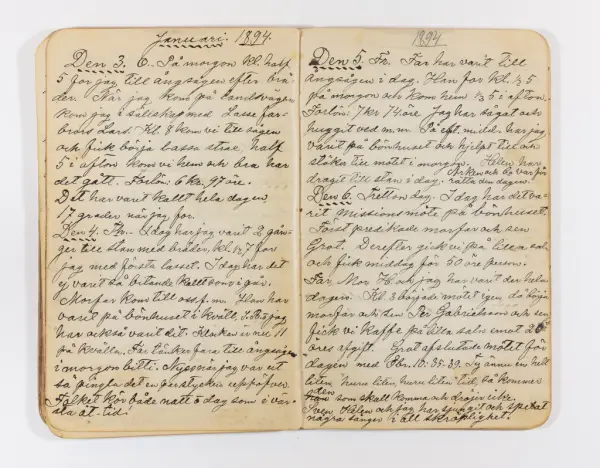 Januari. 1894.
Den 3. O. På morgon kl. half
5 for jag till ångsågen efter brä-
der. När jag kom på landsvägen
kom jag i sällskap med Lasse far-
brors Lars. Kl. 8 kom vi till sågen
och fick börja lassa strax half
5 i afton kom vi hem och bra har
det gått. Förtön: 6 kr. 97 öre.
Det har varit kallt hela dagen
17 grader när jag for.
Den 4. Th. I dag har jag varit 2 gån-
ger till stan med bräder, kl. ½ 7 for
jag med första lasset. I dag har det
ej varit så bitande kallt som i går.
Morfar kom till oss f.m. Han har
varit på bönhuset i kväll
har också varit dit. Klockan är nu 11
på kvälln. Far tänker fara till ångsågen
i morgon bitti. Nyss när jag var ut
så pingla det en per stycken upp på vägen.
Folket kör både natt o dag som i vär-
sta åt-tid!
1894
Den 5. Fr. Far har varit till
ångsågen i dag. Han for kl. ½ 5
på morgon och kom hem ½ 5 i afton.
Förtön: 7 kr 74 öre. Jag har sågat och
huggit ved m.m. På eft.midd. har jag
varit på bönhuset och hjelpt till och
stökar till mötet i morgon. Helen har
dragit till stan i dag.
Den 6. Trettondag. I dag har det va-
rit Missionsmöte på bönhuset.
Först predikade morfar och sen
Grot. Derefter gick vi på lilla sal.
och fick middag för 50 öre person.
Far, Mor, H. och jag har varit der hela
dagen. Kl. 3 började mötet igen, då började
morfar och sen Per Gabrielsson och sen
fick vi kaffe på lilla saln emot 25
öres afgift. Grot afslutade mötet för
dagen med Ebr. 10: 35-39. Ty ännu en helt
liten, huru liten, huru liten tid, så kommer
den
som skall komma och dröjer icke.
Sven, Helen och jag har spungit och spelat
några sånger i all skröplighet.